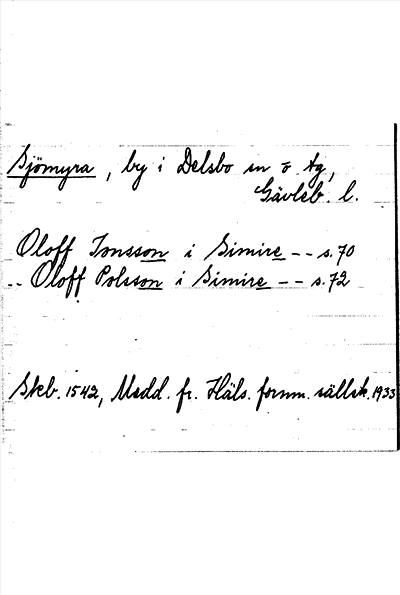 Sjömyra, by i Delsbo sn o tg,
Gävleb. l.
Oloff Jonsson i Simire -- s. 70
.. Oloff Polsson i Simire -- s. 72
Skb. 1542, Medd. fr. Häls. fornm. sällsk. 1933